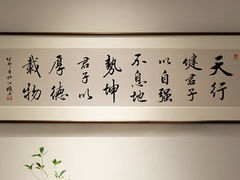 天行
健君子
以自强
不息地
势坤
君子以
厚德
载物